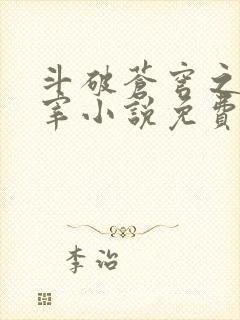 斗破蒼穹之
宰小說免費
李治